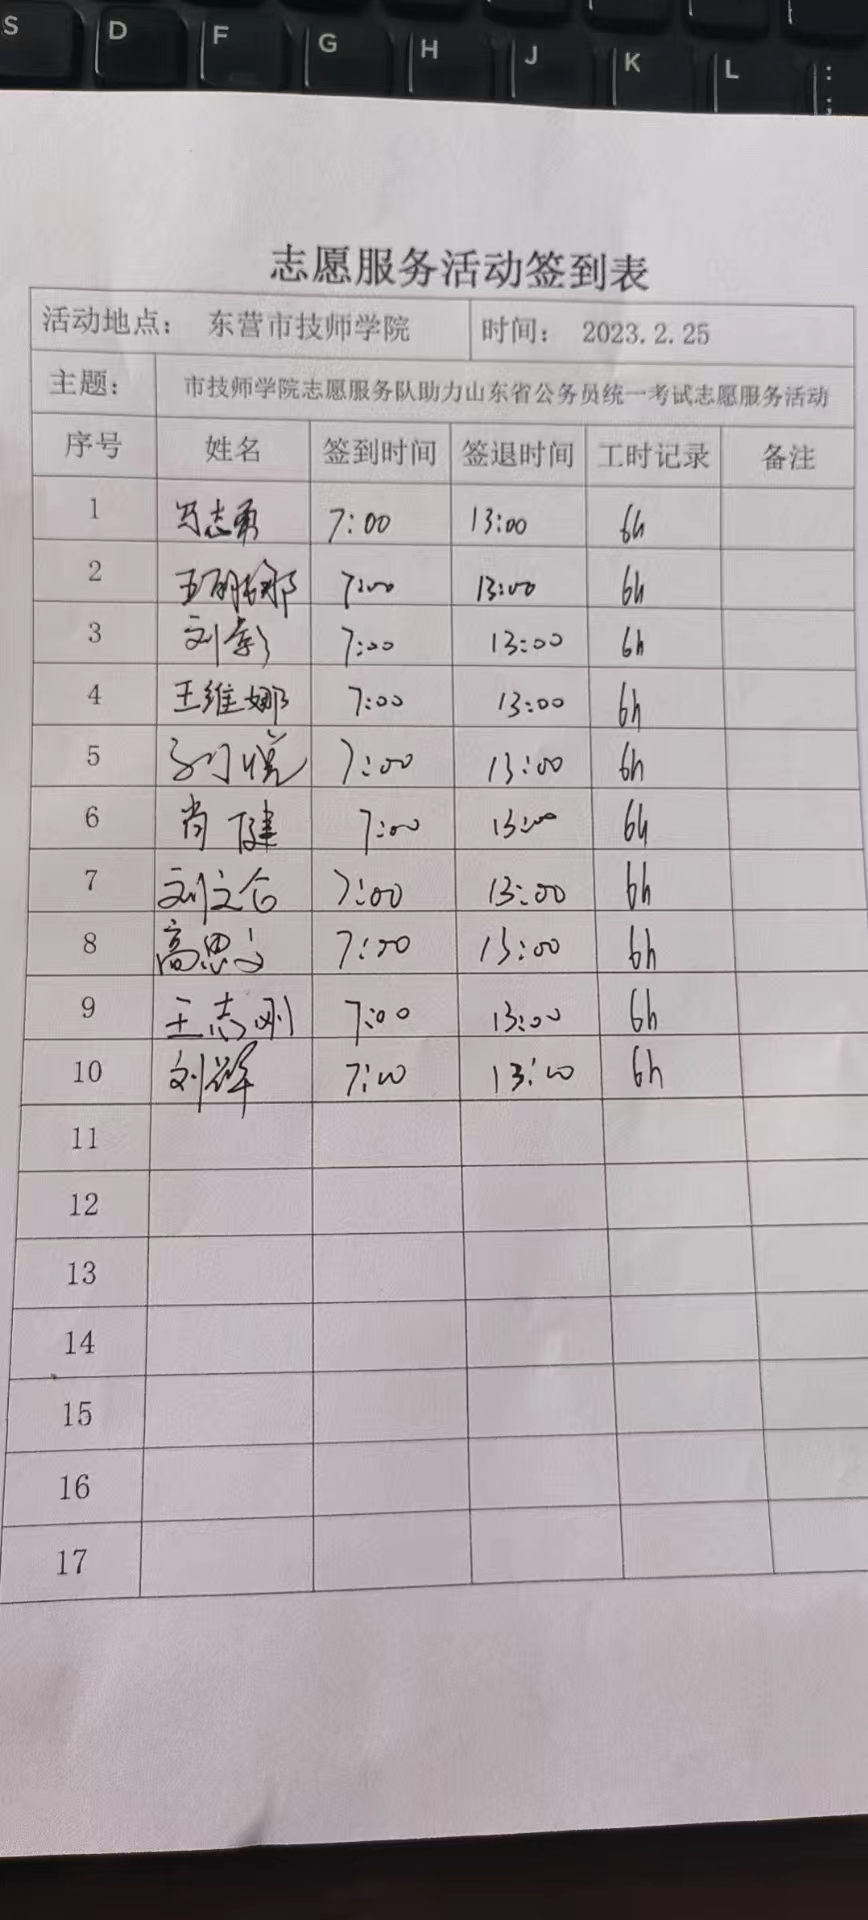 S D F G H J K L : ;
志愿服务活动签到表
活动地点： 东营市技师学院 时间： 2023.2.25
主题： 市技师学院志愿服务队助力山东省公务员统一考试志愿服务活动
序号 姓名 签到时间 签退时间 工时记录 备注
1 志勇 7:00 13:00 6h
2 7:00 13:00 6h
3 刘彰 7:00 13:00 6h
4 王维娜 7:00 13:00 6h
5 7:00 13:00 6h
6 肖健 7:00 13:00 6h
7 刘文 7:00 13:00 6h
8 高思文 7:00 13:00 6h
9 王志刚 7:00 13:00 6h
10 刘 7:00 13:00 6h
11
12
13
14
15
16
17